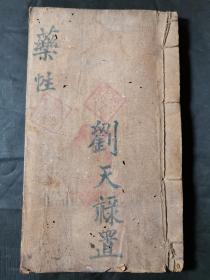 藥性
劉天祿置